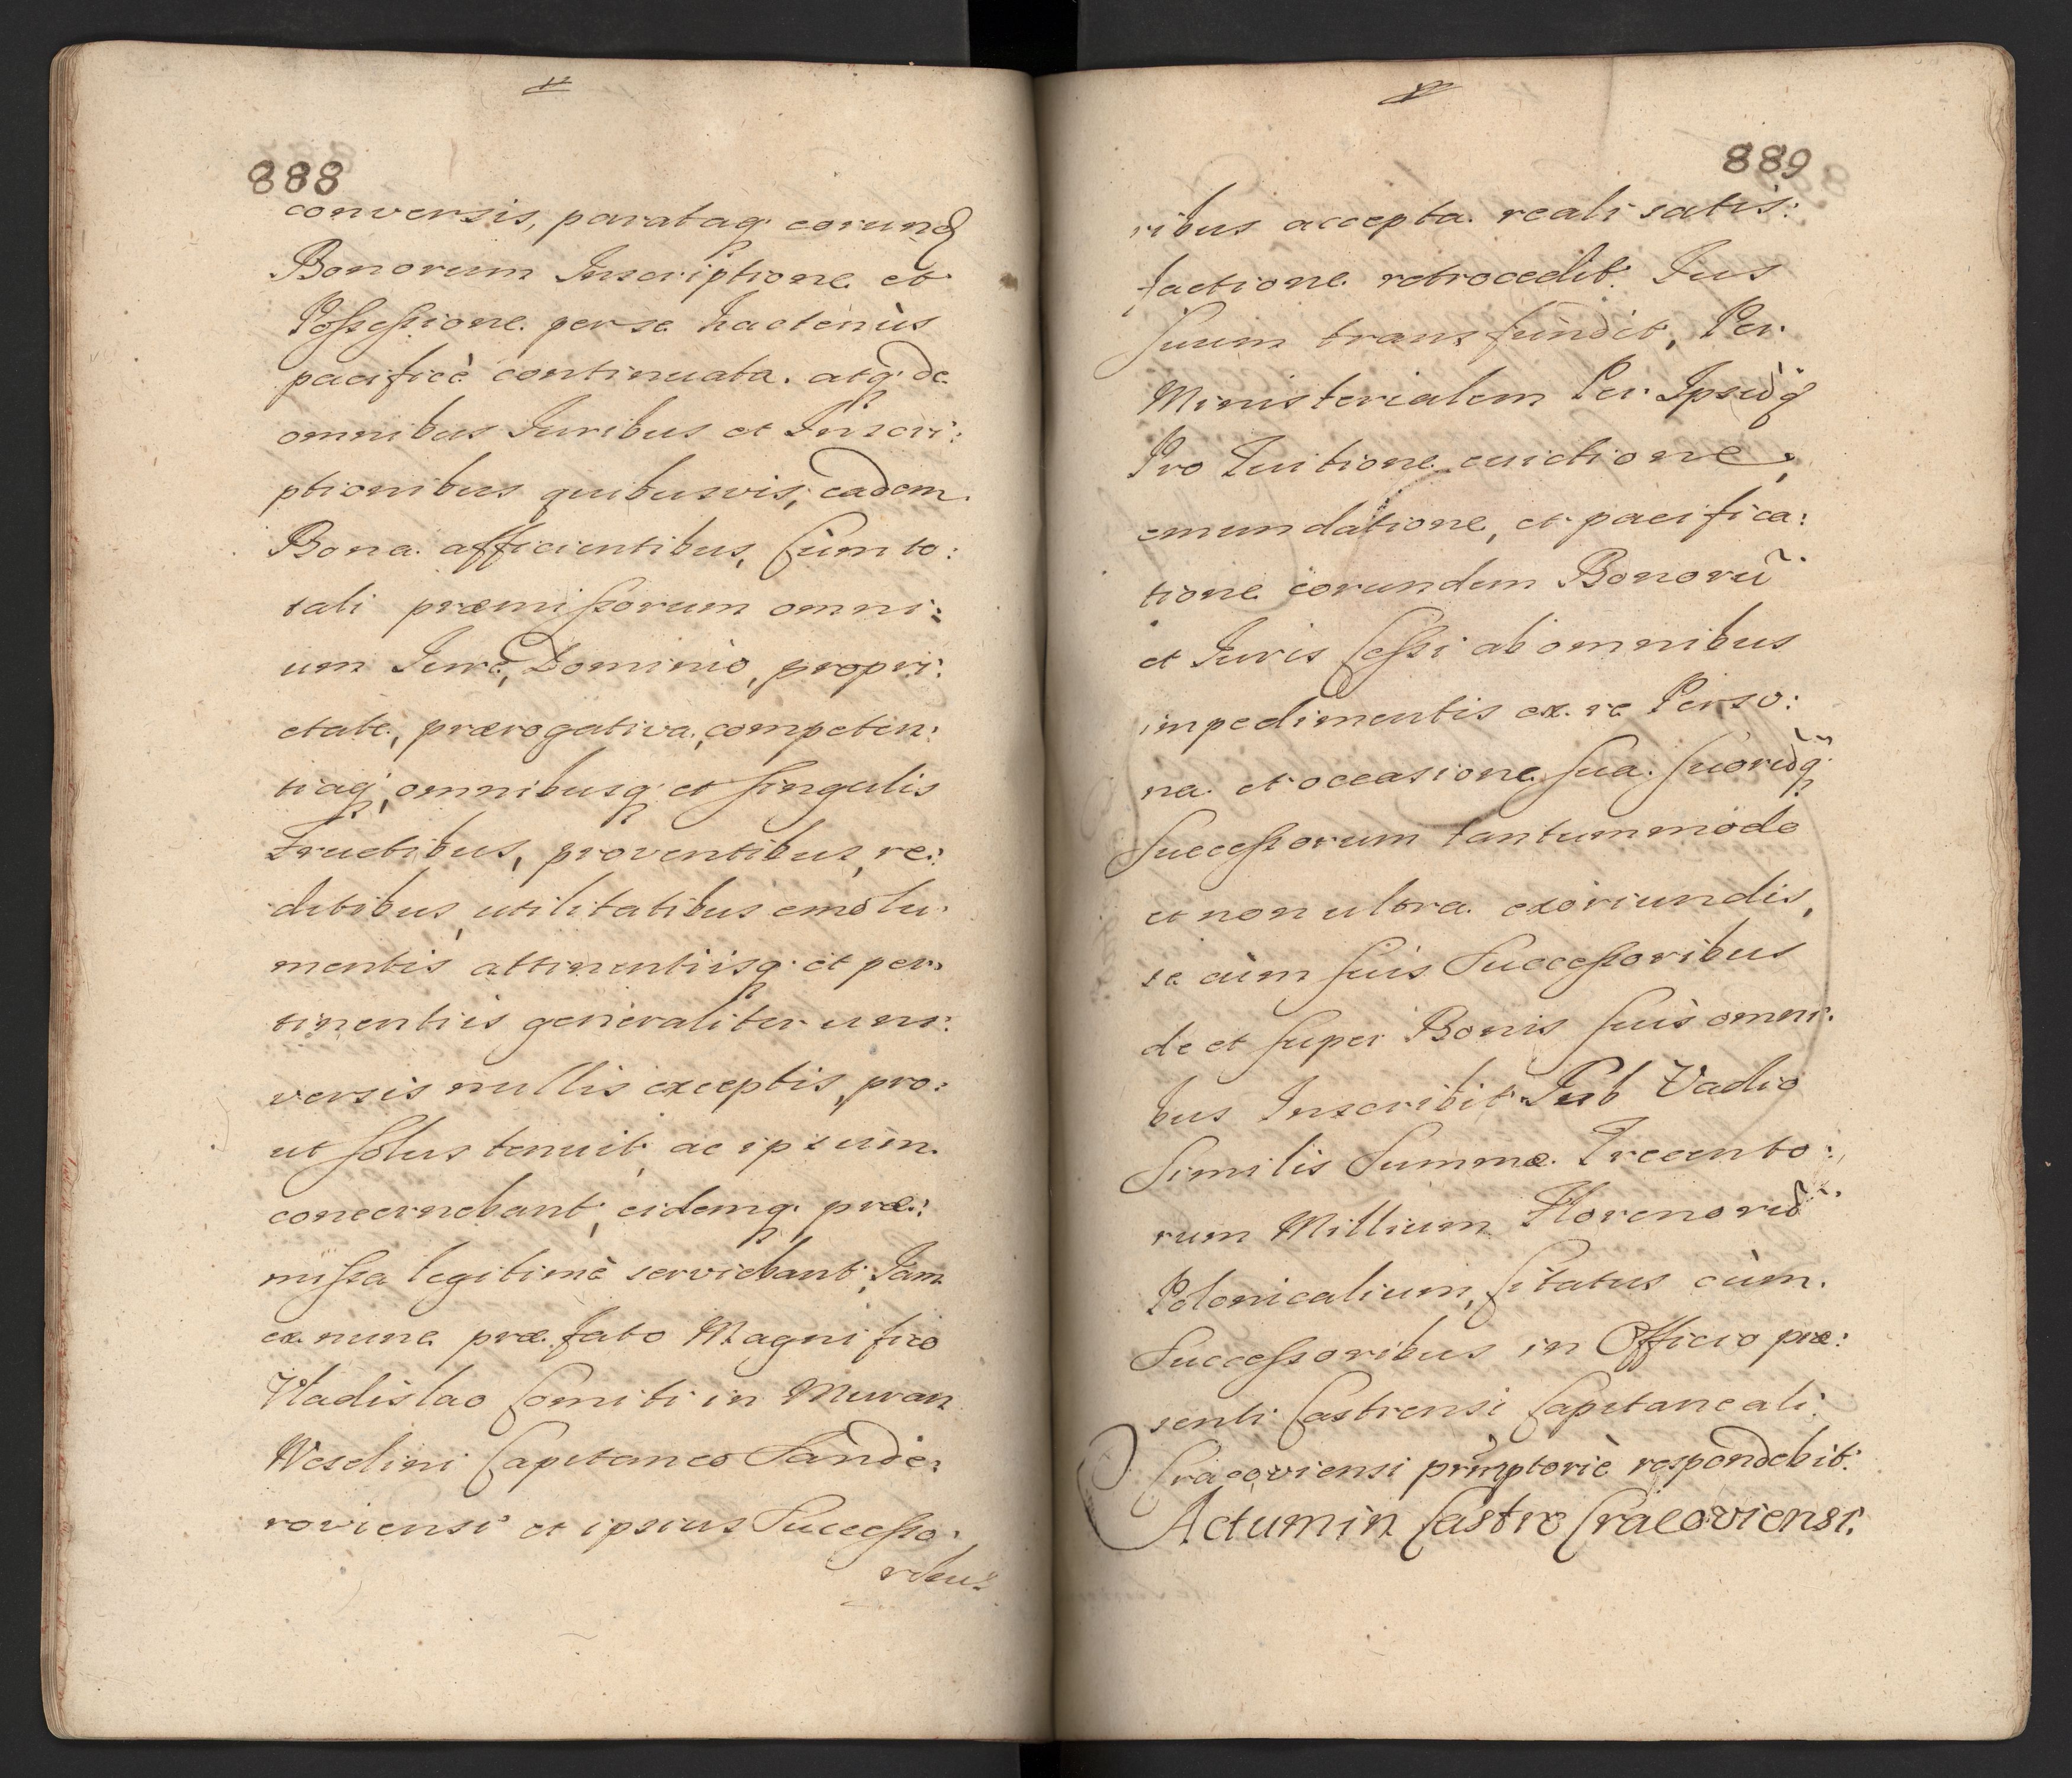 888
conversis, parataq; eorund
Bonorum Inscriptione et
Possessione per se hactenùs
pacificè continuata. atq; de
omnibus Iuribus et Inscri:
ptionibus quibusvis, eadem
Bona afficientibus, Cùm to:
tali præmissorum omni:
um Iure, Dominio, propri:
etate, prærogativa, competen:
tiaq;, omnibusq; et singulis
Fructibus, proventibus, re:
ditibus, utilitatibus emolu:
mentis attinentiisq; et per:
tinentiis generaliter uni:
versis nullis exceptis, pro:
ut solus tenuit, ac ipsum
concernebant, eidemq; præ:
missa legitimè serviebant, Iam
ex nunc præfato Magnifico
Vladislao Comiti in Muran
Weselini Capitaneo Sando:
roviensi et ipsius Successo:
ribus
889
ribus accepta reali satis:
factione retrocedit. Ius
suum transfundit, Per
Ministerialem Per Ipsũq;
Pro Tuitione evictione,
emundatione, et pacifica:
tione eorundem Bonorũ
et Iuris Cessi ab omnibus
impedimentis ex re Perso:
na et occasione sua suorũq;
Successorum tantummodo
et non ultra exoriundis,
se cùm suis Successoribus
de et super Bonis suis omni:
bus Inscribit Sub Vadio
Similis Summæ Trecento:
rum Millium Florenorũ
Polonicalium, Citatus cùm
Successoribus in Officio præ:
senti Castrensi Capitaneali
Cracoviensi pr̃mptoriè respondebit.
Actum in Castro Cracoviensi.